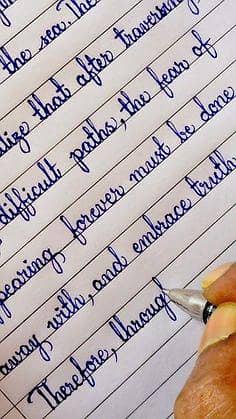 the sea. The
lize that after traversing
difficult paths, the fear of
pearing, forever must be done
away, with, and embrace truth
Therefore, throug